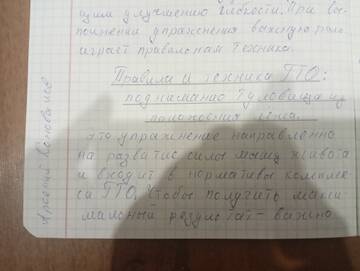 щим улучшению гибкости. При вы-
полнении упражнения важную роль
играет правильная техника.
Правила и техника ГТО:
поднимание туловища из
положения лёжа.
Это упражнение направленно
на развитие силы мышц живота
и входит в нормативы комплек-
са ГТО. Чтобы получить макси
мальный результат – важно
Арсений